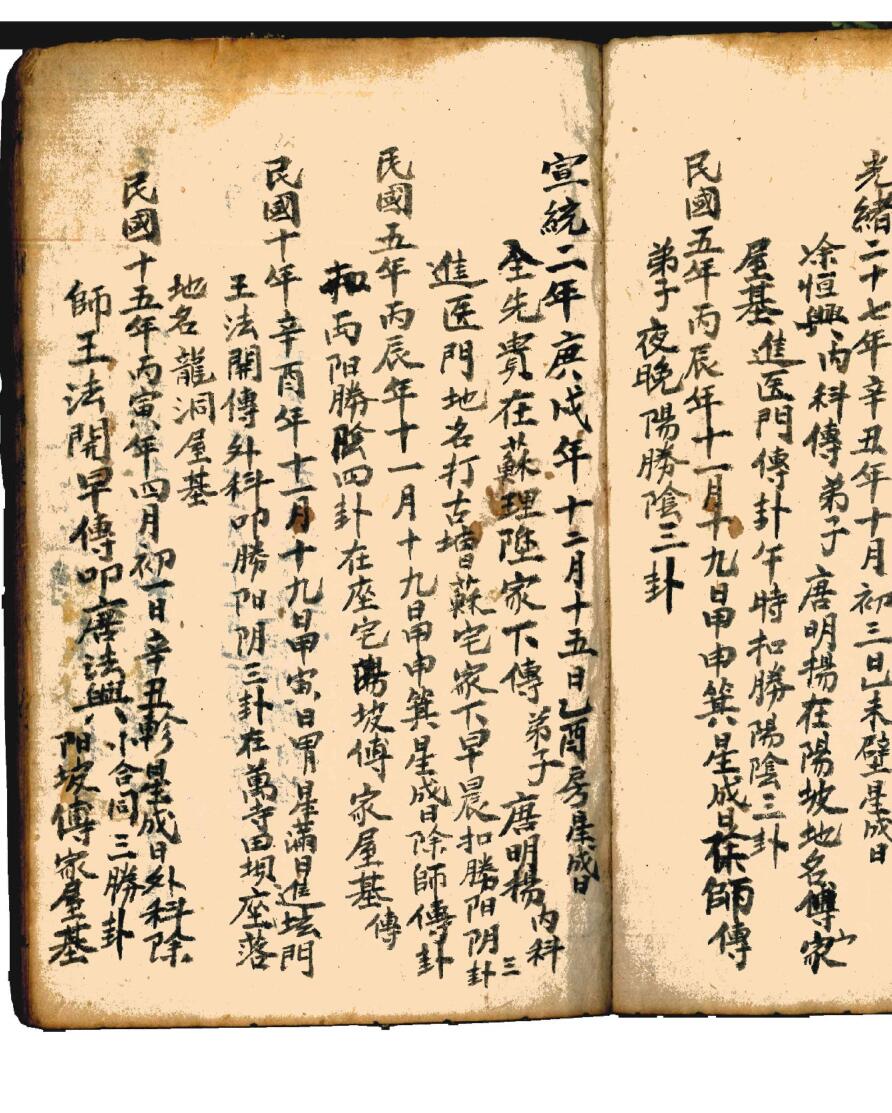 光緒二十七年辛丑年十月初三日己未壁星成日
凃恒興丙科傳弟子唐明揚在陽坡地名傅家
屋基進医門傳卦午時扣勝陽陰三卦
民國五年丙辰年十一月十九日甲申箕星成日徐師傳
弟子夜晚陽勝陰三卦
宣統二年庚戌年十二月十五日乙酉房星成日
全先貴在蘇理陞家下傳弟子唐明楊内科
進医門地名打古塘蘇宅家下早晨扣勝阳阴三卦
民國五年丙辰年十一月十九日甲申箕星成日除師傳卦
丙阳勝陰四卦在座宅陽坡傅家屋基傳
民國十年辛酉年十一月十九日甲寅日胃星滿日進坛門
王法開傳外科叩勝阳阴三卦在萬寺田坝座落
地名龍洞屋基
民國十五年丙寅年四月初一日辛丑軫星成日外科除
師王法開早傳叩唐法興小合同三勝卦
阳坡傅家屋基